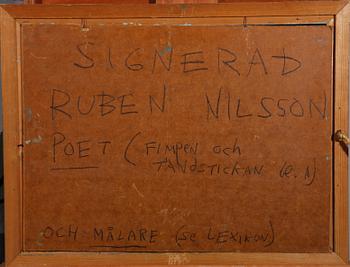 SIGNERAD
RUBEN NILSSON
POET (FIMPEN och
TÄNDSTICKAN
OCH MÅLARE (se LEXIKON)